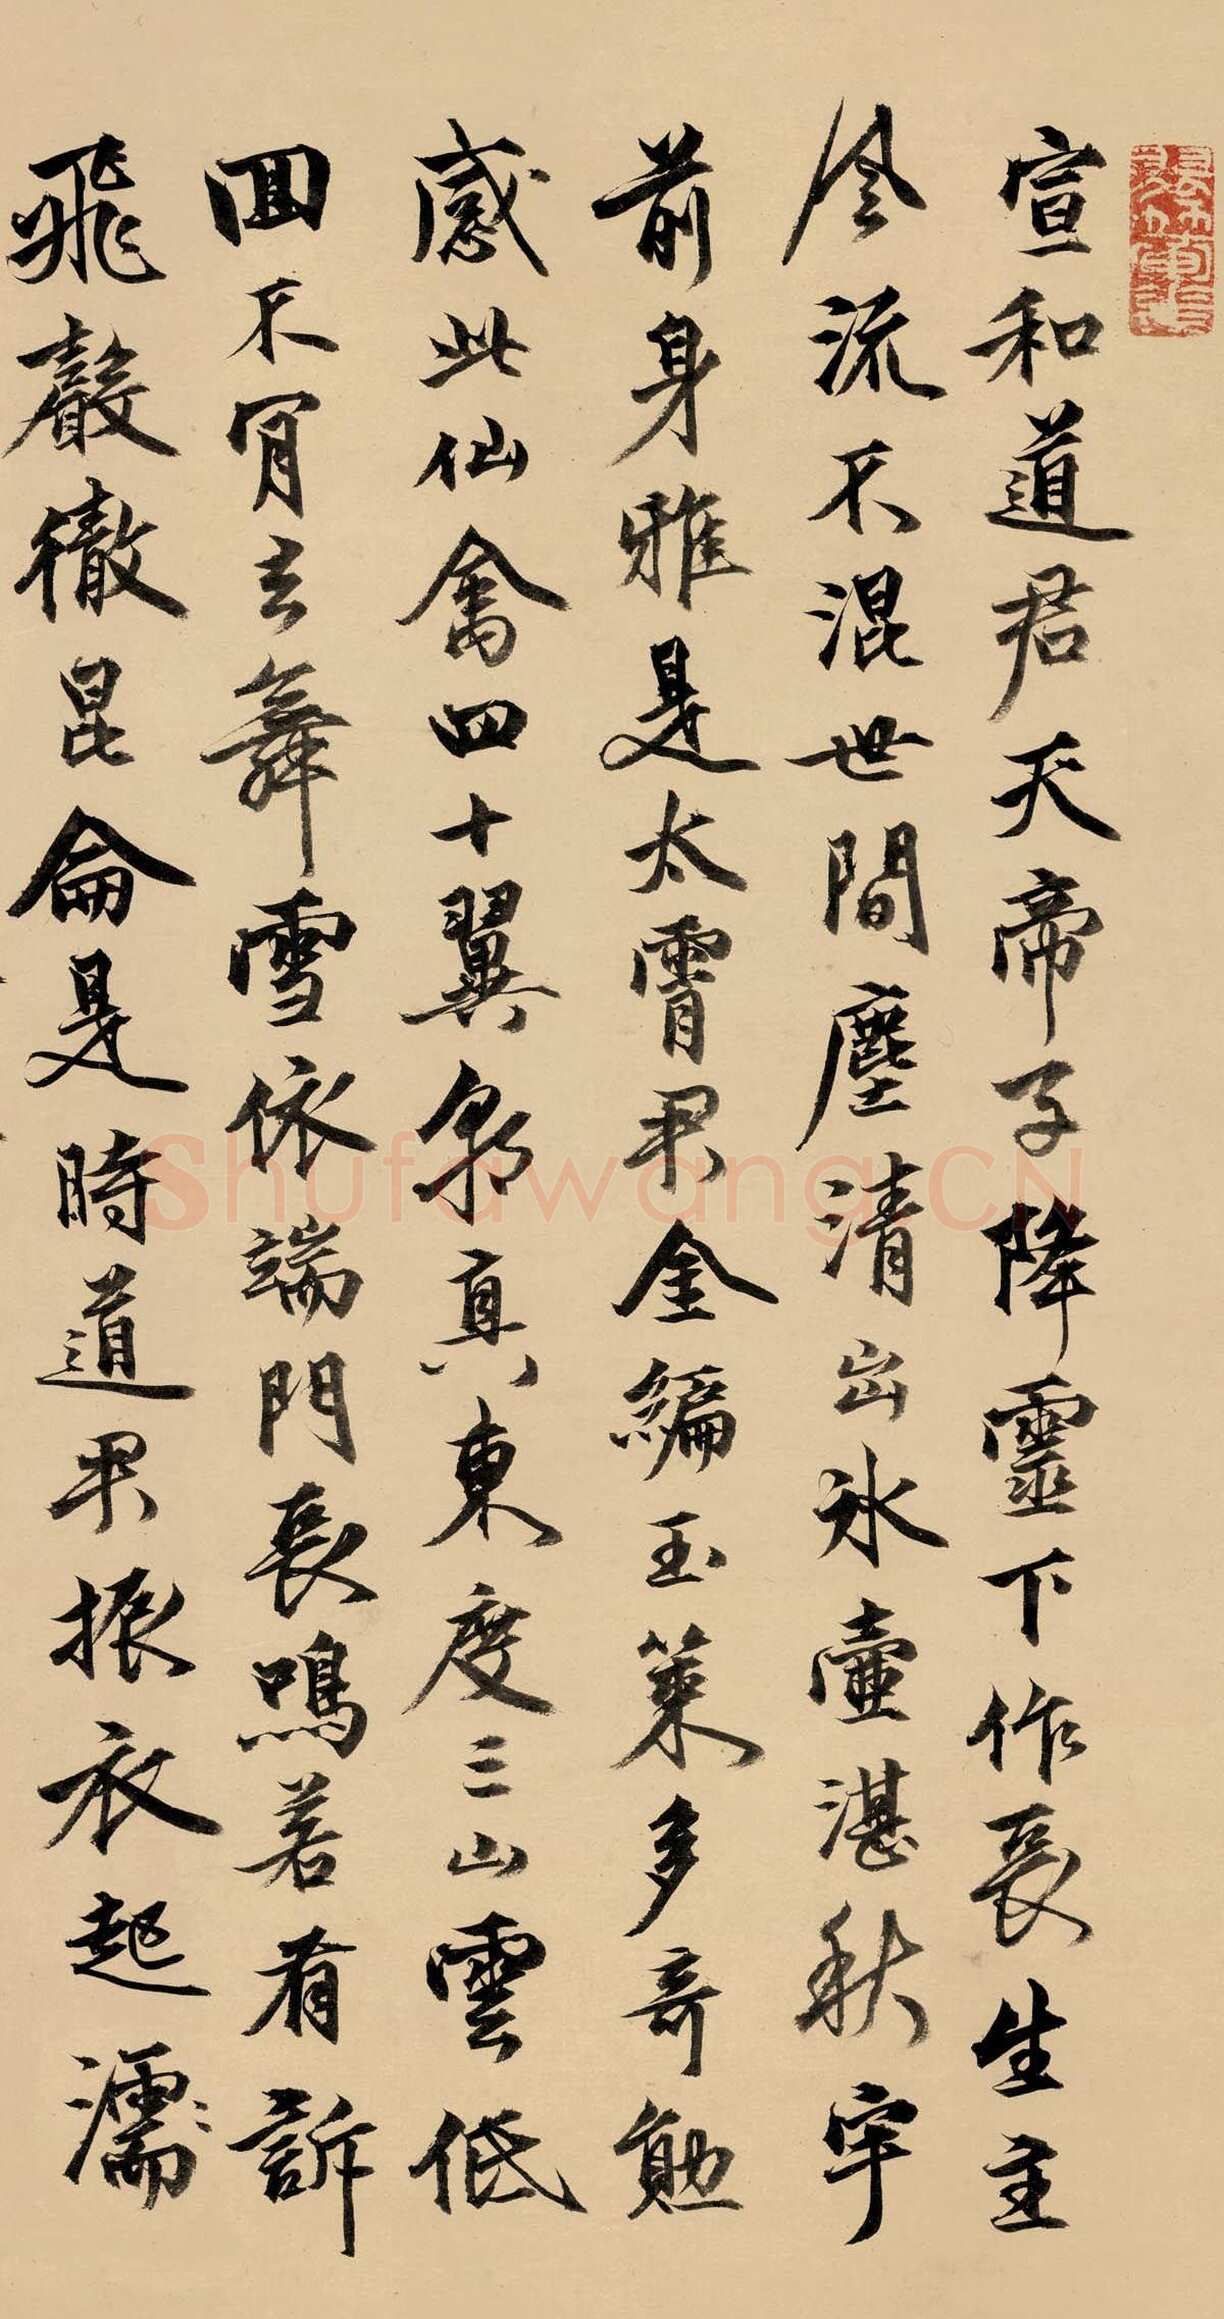 宣和道君天帝子降靈下作長生主
風流不混世間塵清出冰壺湛秋宇
前身雅是太霄君金編玉策多奇勳
感此仙禽四十翼朝真東度三山雲低
回不肯去舞雪依端門長鳴若有訴
飛聲徹昆侖是時道君振衣起濡
shufawang.CN